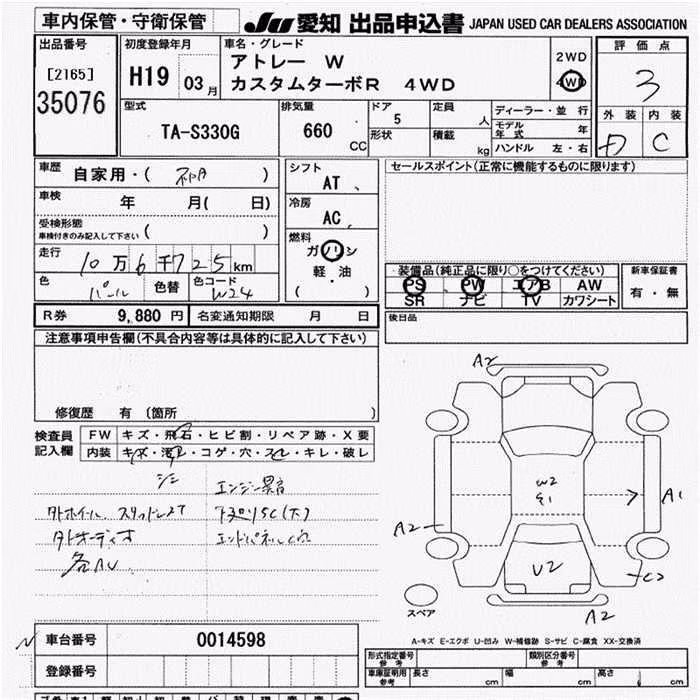 車内保管・守衛保管
JU 愛知 出品申込書 JAPAN USED CAR DEALERS ASSOCIATION
出品番号 初度登録年月 車名・グレード 評価点
[2165] H19 03月 アトレー W 2WD 3
35076 カスタムターボR 4WD 4WD
型式 排気量 ドア 定員 ディーラー・並行 外装 内装
TA-S330G 660 CC 5 人 モデル年式 年 D C
形状 積載 kg ハンドル 左・右
車歴 自家用・( ) シフト セールスポイント(正常に機能するものに限ります)
AT、
車検 年 月( 日) 冷房
受検形態 AC、
車検付きのみ記入して下さい ( )
走行 燃料
10万6千725km ガソリン 装備品(純正品に限り○をつけてください) 新車保証書
色 パール 色替 色コード W24 軽・油 PS PW エアB AW 有・無
( ) SR ナビ TV カワシート
R券 9,880円 名変通知期限 月 日 後日品
注意事項申告欄(不具合内容等は具体的に記入して下さい)
修復歴 有 (箇所 )
検査員 FW キズ・飛石・ヒビ割・リペア跡・X要
記入欄 内装 キズ・汚れ・コゲ・穴・スレ・キレ・破レ
シミ エンジン異音
外ホイール スタッドレス 下廻りSC(大)
外オーディオ
各AU
A2
W2
A1
A2
U2
C2
スペア A2
車台番号 0014598
A-キズ E-エクボ U-凹み W-補修跡 S-サビ C-腐食 XX-交換済
登録番号
形式指定番号 参考 類別区分番号 参考
車庫証明用 参考 長さ cm 幅 cm 高さ cm